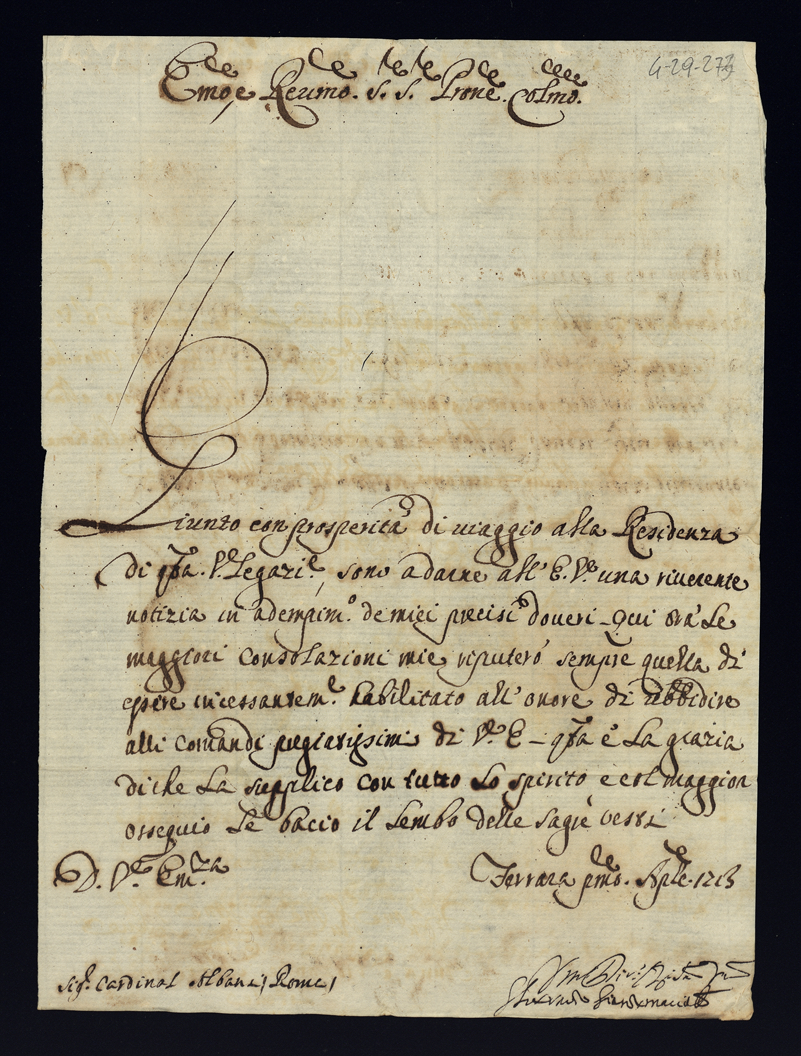 4-29-273
Emo, e Reumo. S. S. Prone. Colmo.
Giunto con prosperità di viaggio alla Residenza
di qsta. Ve. Legazie., sono a darne all' E. Va. una riverente
notizia in adempimo. de miei precisi doveri. Qui frà le
maggiori consolazioni mie riputerò sempre quella di
essere incessanteme. habilitato all' onore di ubbidire
alli comandi pregiatissimi di Va. E. qsta è la grazia
di che la supplico con tutto lo spirito e col maggior
ossequio le bacio il lembo delle sagre vesti
D. Va. Emza.
Ferrara pmo. Aple. 1713
Sigr. Cardinal Albani, Roma,